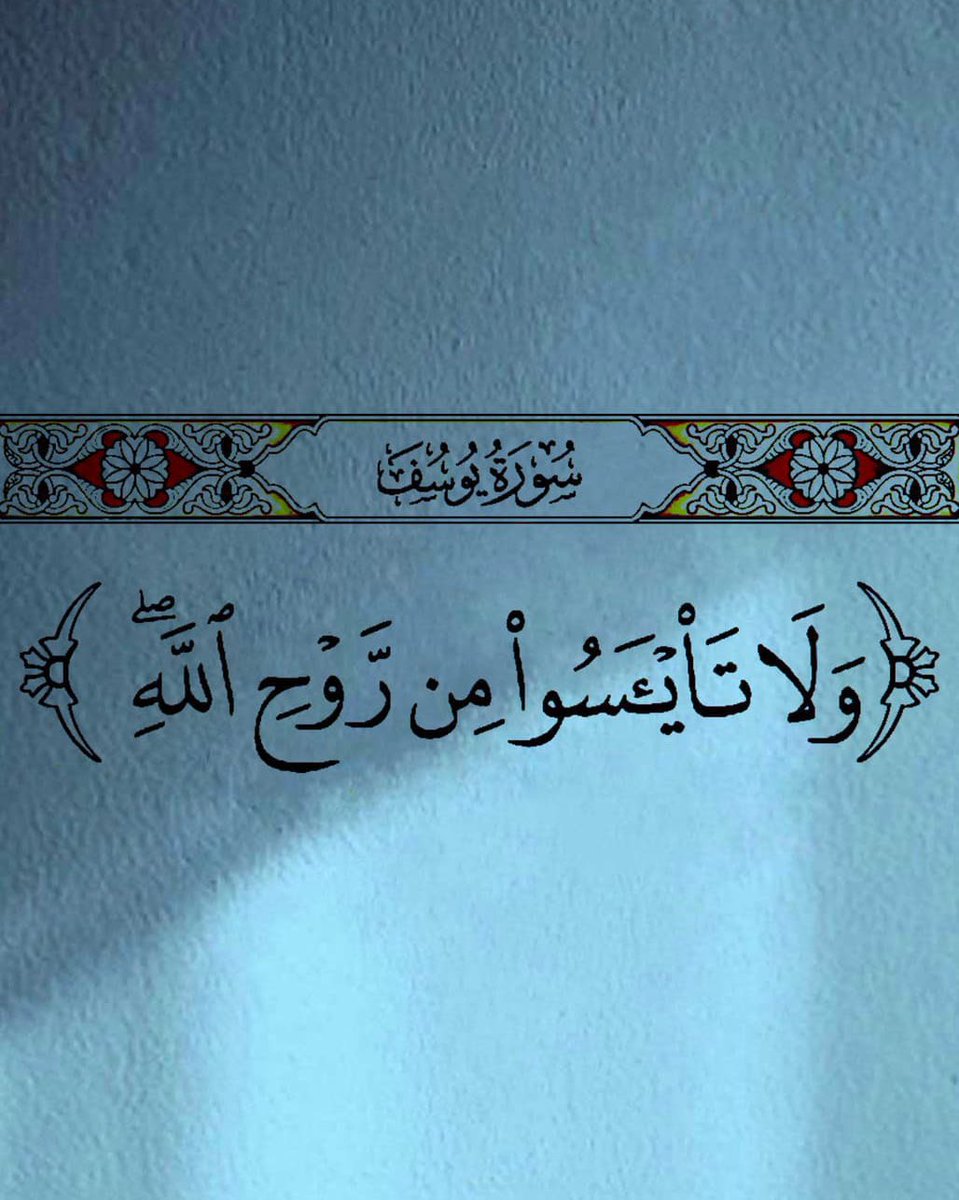 سُورَةُ يُوسُفَ
وَلَا تَاْيْـَٔسُواْ مِن رَّوْحِ ٱللَّهِۖ